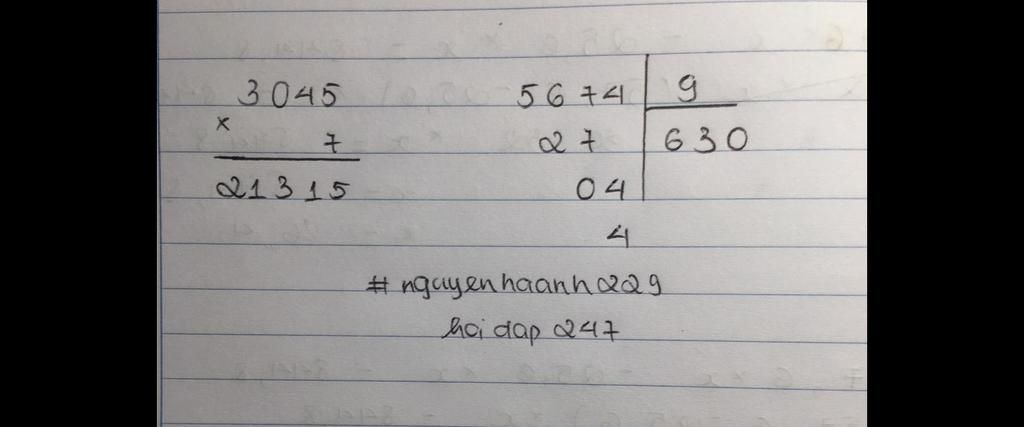 3045
×
7
21315
5674 9
27 630
04
4
# nguyenhaanh229
hoidap 247